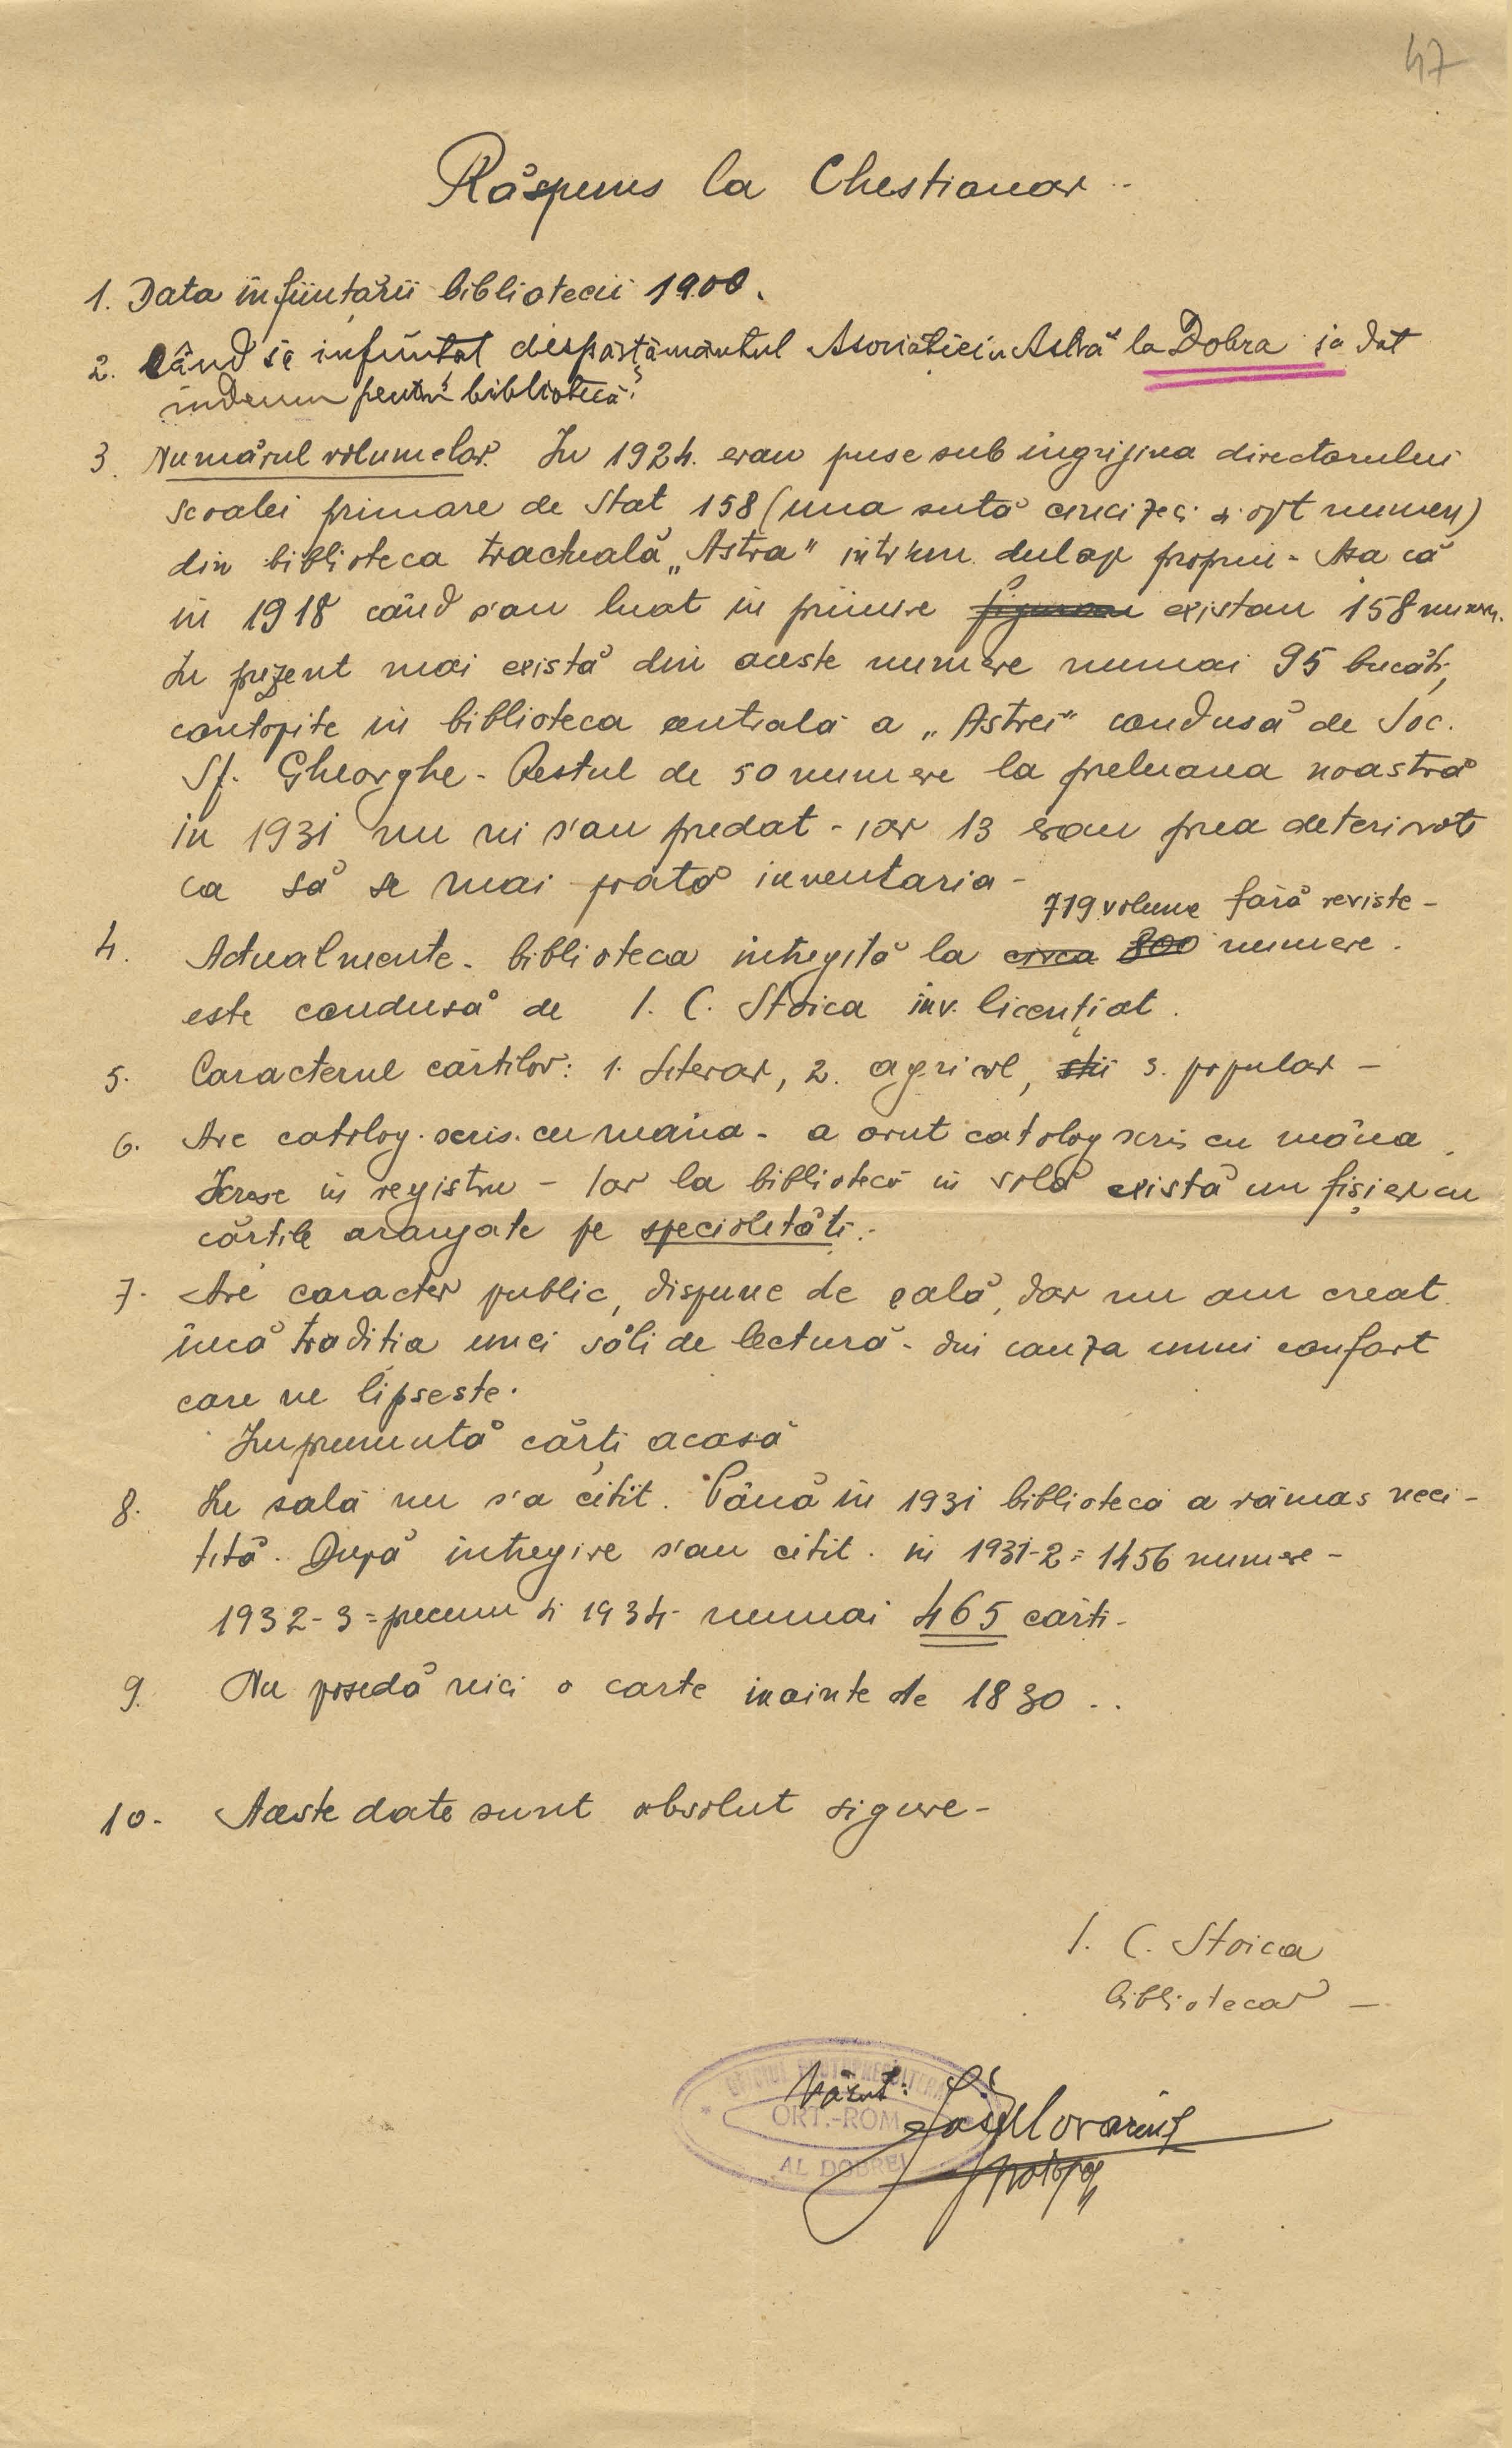 47
Răspuns la Chestionar
1. Data înființării bibliotecii 1900.
2. Când s'a inființat despărțământul Asociației „Astra" la Dobra s'a dat
indemn pentru bibliotecă.
3. Numărul volumelor. In 1924. erau puse sub ingrijirea directorului
scoalei primare de Stat 158 (una sută cinci zeci si opt numere)
din biblioteca tractuală „Astra" intr'un dulap propriu - Asa că
in 1918 când s'au luat in primire existau 158 numere.
In prezent mai există din aceste numere numai 95 bucăți,
contopite in biblioteca centrală a „Astrei" condusă de Soc.
Sf. Gheorghe - Restul de 50 numere la preluarea noastră
in 1931 nu ni s'au predat - iar 13 erau prea deteriorate
ca să se mai poată inventaria -
719 volume fără reviste -
4. Actualmente - biblioteca intregită la circa 800 numere.
este condusă de I. C. Stoica inv. licențiat.
5. Caracterul cărtilor: 1. Literar, 2. agricol, stii 3. popular -
6. Are catolog. scris. cu mâna - a avut catolog scris cu mâna.
Scrise in registru - Iar la bibliotecă in sală există un fișier cu
cărtile aranjate pe specialităti.-
7. Are caracter public, dispune de sală, dar nu am creat
încă traditia unei săli de lectură - din cauza unui confort
care ne lipseste.
Imprumută cărți acasă
8. In sală nu s'a citit. Până in 1931 biblioteca a rămas neci-
tită. După intregire s'au citit. in 1931-2 = 1456 numere -
1932-3 = precum si 1934 - numai 465 cărti -
9. Nu posedă nici o carte inainte de 1830 ..
10. Aceste date sunt absolut sigure -
I. C. Stoica
bibliotecar -
Văzut:
ORT.-ROM
AL DOBREI
protopop